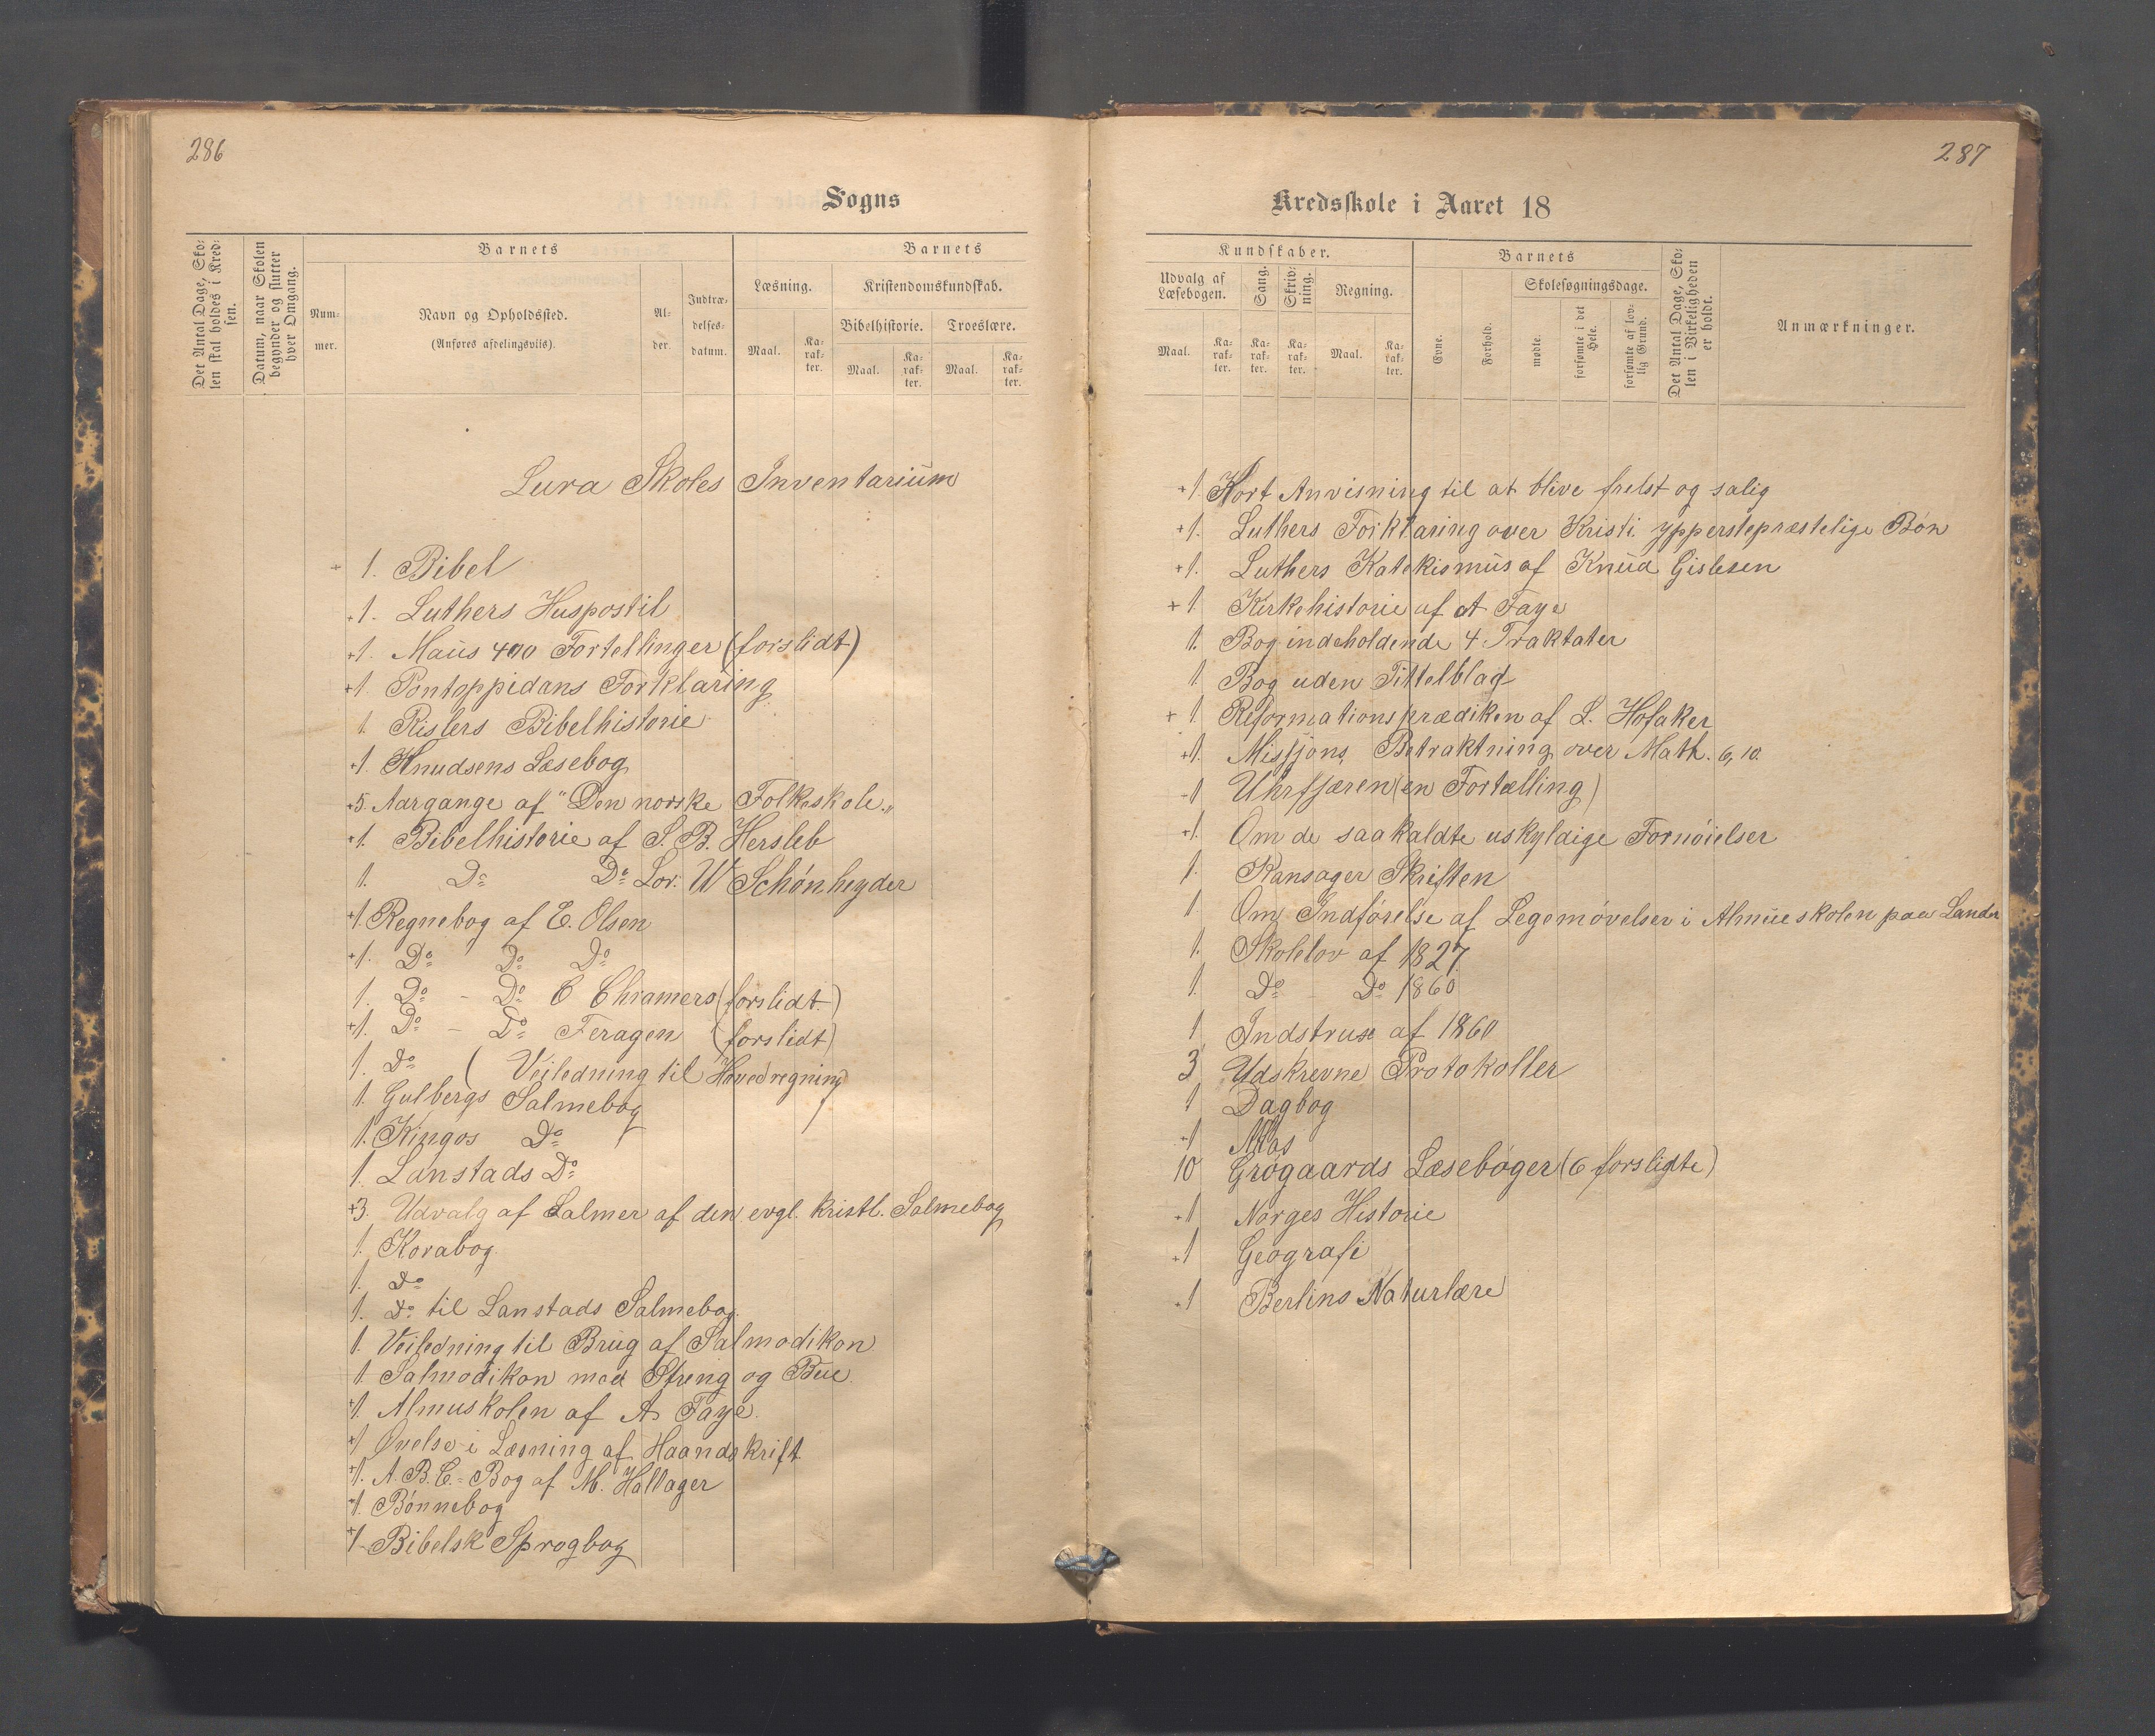 286
Sogns
Det Antal Dage, Sko-
len skal holdes i Kred-
sen.
Datum, naar Skolen
begynder og slutter
hver Omgang.
Barnets
Num-
mer.
Navn og Opholdssted.
(Anføres afdelingsviis).
Al-
der.
Indtræ-
delses-
datum.
Barnets
Læsning.
Kristendomskundskab.
Bibelhistorie.
Troeslære.
Maal.
Ka-
rak-
ter.
Maal.
Ka-
rak-
ter.
Maal.
Ka-
rak-
ter.
Lura Skoles Inventarium
+ 1. Bibel
+1. Luthers Huspostil
+1. Maus 400 Fortellinger (forslidt)
+1 Pontoppidans Forklaring
1. Rislers Bibelhistorie
+1. Knudsens Læsebog
+5. Aargange af "Den norske Folkeskole."
+1. Bibelhistorie af S. B. Hersleb
1. Do Do Lor. W Schønheyder
+1. Regnebog af E. Olsen
+1. Do Do Do
1. Do - Do C Chramers (forslidt.)
+1. Do - Do Feragen (forslidt)
1. Do (Veiledning til Hovedregning)
1. Gulbergs Salmebog
1. Kingos Do
1. Lanstads Do
+3. Udvalg af Salmer af den evgl. kristl. Salmebog
1. Korabog.
1. Do
1. Do til Lanstads Salmebog.
1. Veiledning til Brug af Salmodikon
1 Salmodikon med Streng og Bue.
+1. Almuskolen af A Faye.
+1 Øvelse i Læsning af Haandskrift
+1. A.B.C.-Bog af M. Hallager
+1. Bønnebog
+1 Bibelsk Sprogbog
287
Kredsskole i Aaret 18
Kundskaber.
Udvalg af
Læsebogen.
Sang.
Skriv-
ning.
Regning.
Maal.
Ka-
rak-
ter.
Ka-
rak-
ter.
Ka-
rak-
ter.
Maal.
Ka-
rak-
ter.
Barnets
Evne.
Forhold.
Skolesøgningsdage.
mødte.
forsømte i det
Hele.
forsømte af lov-
lig Grund.
Det Antal Dage, Sko-
len i Virkeligheden
er holdt.
Anmærkninger.
+1. Kort Anvisning til at blive frelst og salig
+1. Luthers Forklaring over Kristi. ypperstepræstelige Bøn
+1. Luthers Katekismus af Knud Gislesen
+1 Kirkehistorie af A Faye
1. Bog indeholdende 4 Traktater
1 Bog uden Tittelblad
+ 1 Reformationsprædiken af L. Hofaker
+1. Missjons Betraktning over Math. 6, 10.
-1 Uhrfjæren (en Fortælling)
+1. Om de saakaldte uskyldige Fornøielser
1. Ransager Skriften
1. Om Indførelse af Legemøvelser i Almueskolen paa Landet
1. Skolelov af 1827.
1. Do - Do 1860
1 Indstrux af 1860
3 Udskrevne Protokoller
1 Dagbog
+1
10 Grøgaards Læsebøger (6 forslidte)
+1 Norges Historie
+1 Geografi
+1 Berlins Naturlære